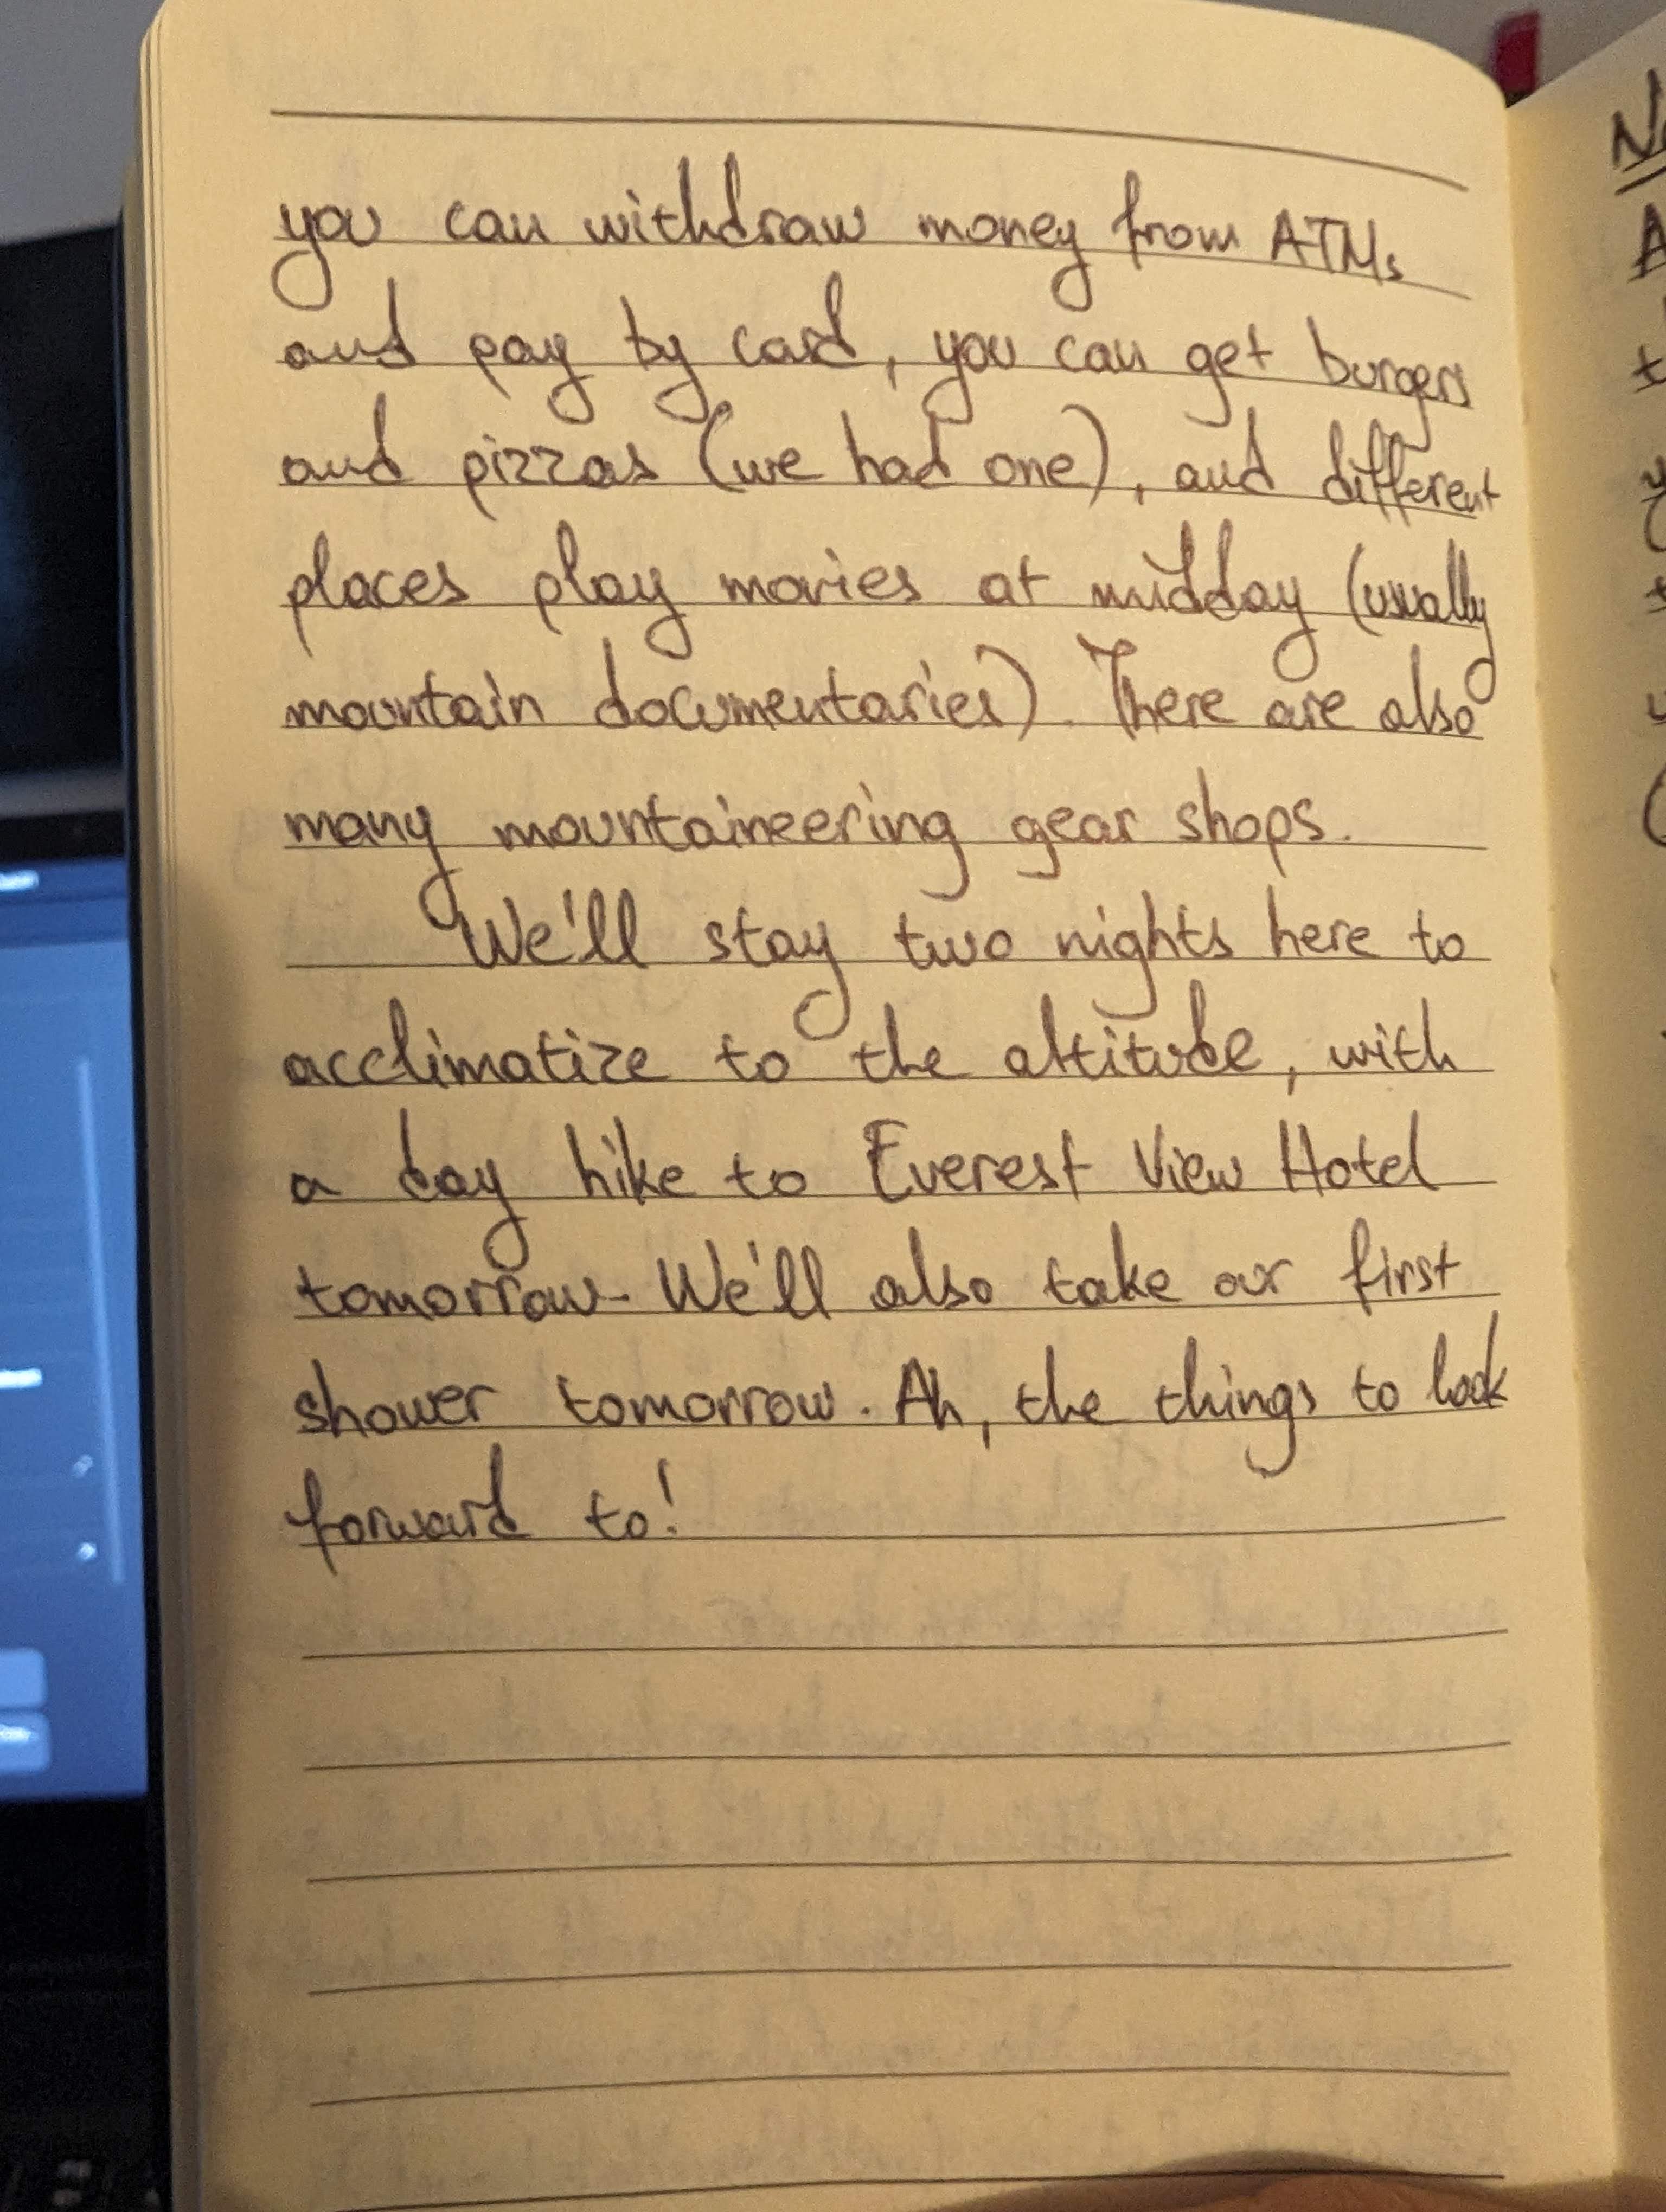 you can withdraw money from ATMs
and pay by card, you can get burgers
and pizzas (we had one), and different
places play movies at midday (usually
mountain documentaries). There are also
many mountaineering gear shops.
We'll stay two nights here to
acclimatize to the altitude, with
a day hike to Everest View Hotel
tomorrow. We'll also take our first
shower tomorrow. Ah, the things to look
forward to!